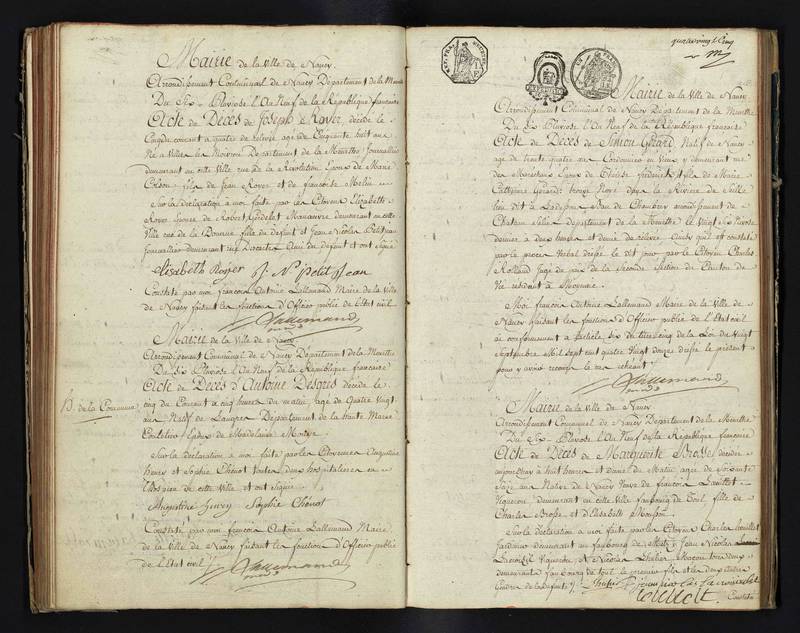 Mairie de la Ville de Nancy.
Arrondissement Communal de Nancy Département de la Meurthe
Du Six Pluviose l'An Neuf de la République française
Acte de Décès de Joseph Royer décédé le
cinq du courant a quatre de relevée agé de Cinquante huit ans
Né a Département de la Meurthe Journallier
demeurant en cette Ville rue de la Révolution Epoux de Marie
fils de Jean Royer et de françoise
Sur la déclaration a moi faite par la Citoyenne Elizabeth
Royer Epouse de Robert Manœuvre demeurant en cette
Ville rue de la fille du défunt et Jean Nicolas Petitjean
Journallier demeurant rue Ami du défunt et ont signé
Elisabeth Royer J. N. petit Jean
Constaté par moi françois Antoine Lallemand Maire de la Ville
de Nancy faisant les fonctions d'Officier public de l'état civil
Lallemand
Mairie de la Ville de Nancy.
Arrondissement Communal de Nancy Département de la Meurthe
Du Six Pluviose l'An Neuf de la République française
Acte de Décès d'Antoine Desgrés décédé le
cinq du Courant a cinq heures du matin, agé de Quatre Vingt
ans Natif de Langres Département de la haute Marne
de Madelaine
Sur la déclaration a moi faite par les Citoyennes Augustine
henry et Sophie Chénot toutes deux hospitalieres en
l'Hospice de cette Ville et ont signé
Augustine henry Sophie Chénot
Constaté par moi françois Antoine Lallemand Maire
de la Ville de Nancy faisant les fonctions d'Officier public
de l'état civil
Lallemand
de la Commune
quatre vingt Cinq
Mairie de la Ville de Nancy
Arrondissement Communal de Nancy Département de la Meurthe
Du Six Pluviose l'An Neuf de la République française
Acte de Décès de Simon Gérard Natif de Nancy
agé de trente quatre ans Cordonnier en Vieux y demeurant rue
des Maréchaux Epoux de fils de Marie
Catherine Gérard trouvé Noyé dans la Riviere de Seille
lieu dit a Ban de Chambrey arrondissement de
Chateau Salin Département de la Meurthe le Vingt Six Nivose
dernier a deux heures et demie de relevée Ainsi que est constaté
par le procès Verbal dressé le dit jour par le Citoyen Charles
Rolland Juge de paix de la Seconde Section du Canton de
Vic résidant a
Moi françois Antoine Lallemand Maire de la Ville de
Nancy faisant les fonctions d'Officier public de l'état civil
ai conformément a l'article Six du titre cinq de la Loi du Vingt
Septembre Mil Sept cent quatre Vingt douze dressé le présent
pour y avoir recours le cas échéant
Lallemand
Mairie de la Ville de Nancy
Arrondissement Communal de Nancy Département de la Meurthe
Du Six Pluviose l'An Neuf de la République française
Acte de Décès de Marguerite Brosse décédée
aujourdhuy a huit heures et demie du Matin agée de Soixante
Seize ans Native de Nancy Veuve de françois
Vigneron demeurant en cette Ville faubourg de Toul fille de
Charles Brosse et d'Elizabeth
Sur la Déclaration a moi faite par les Citoyens Charles
Jardinier demeurant au faubourg de Metz, Jean Nicolas
Vigneron et Nicolas Macon tous deux
demeurants faubourg de Toul le premier fils et les deux autres
Gendres de la défunte
Constaté